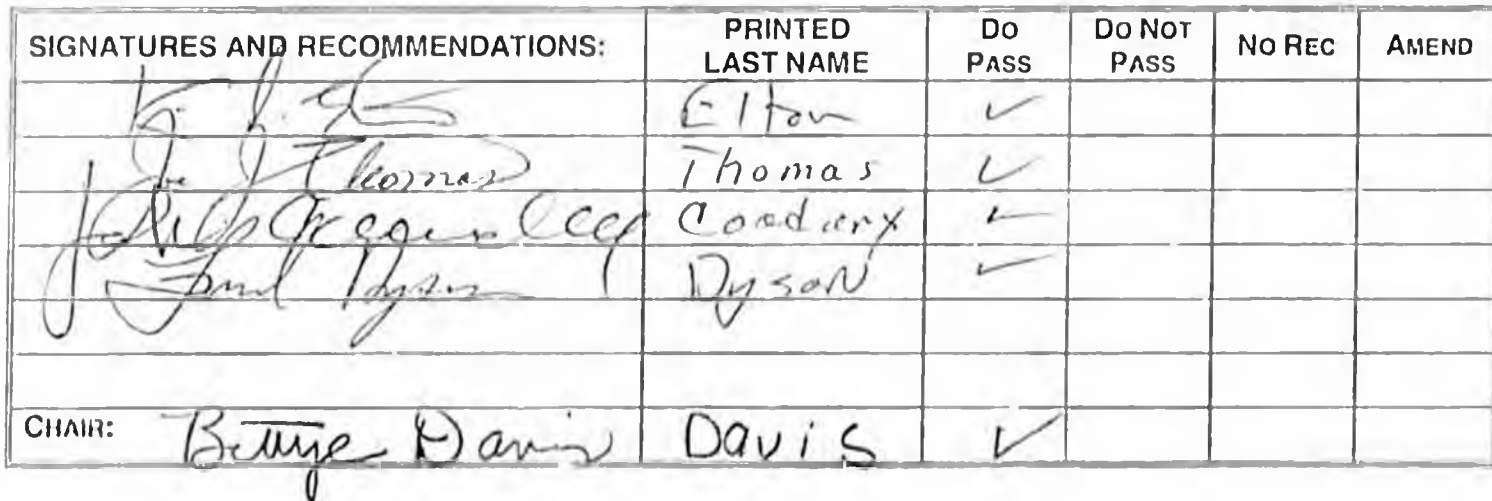 SIGNATURES AND RECOMMENDATIONS: PRINTED LAST NAME DO PASS DO NOT PASS NO REC AMEND
Elton ✓
Joe J Thomas Thomas ✓
✓
Fred Dyson Dyson ✓
CHAIR: Bettye Davis Davis ✓